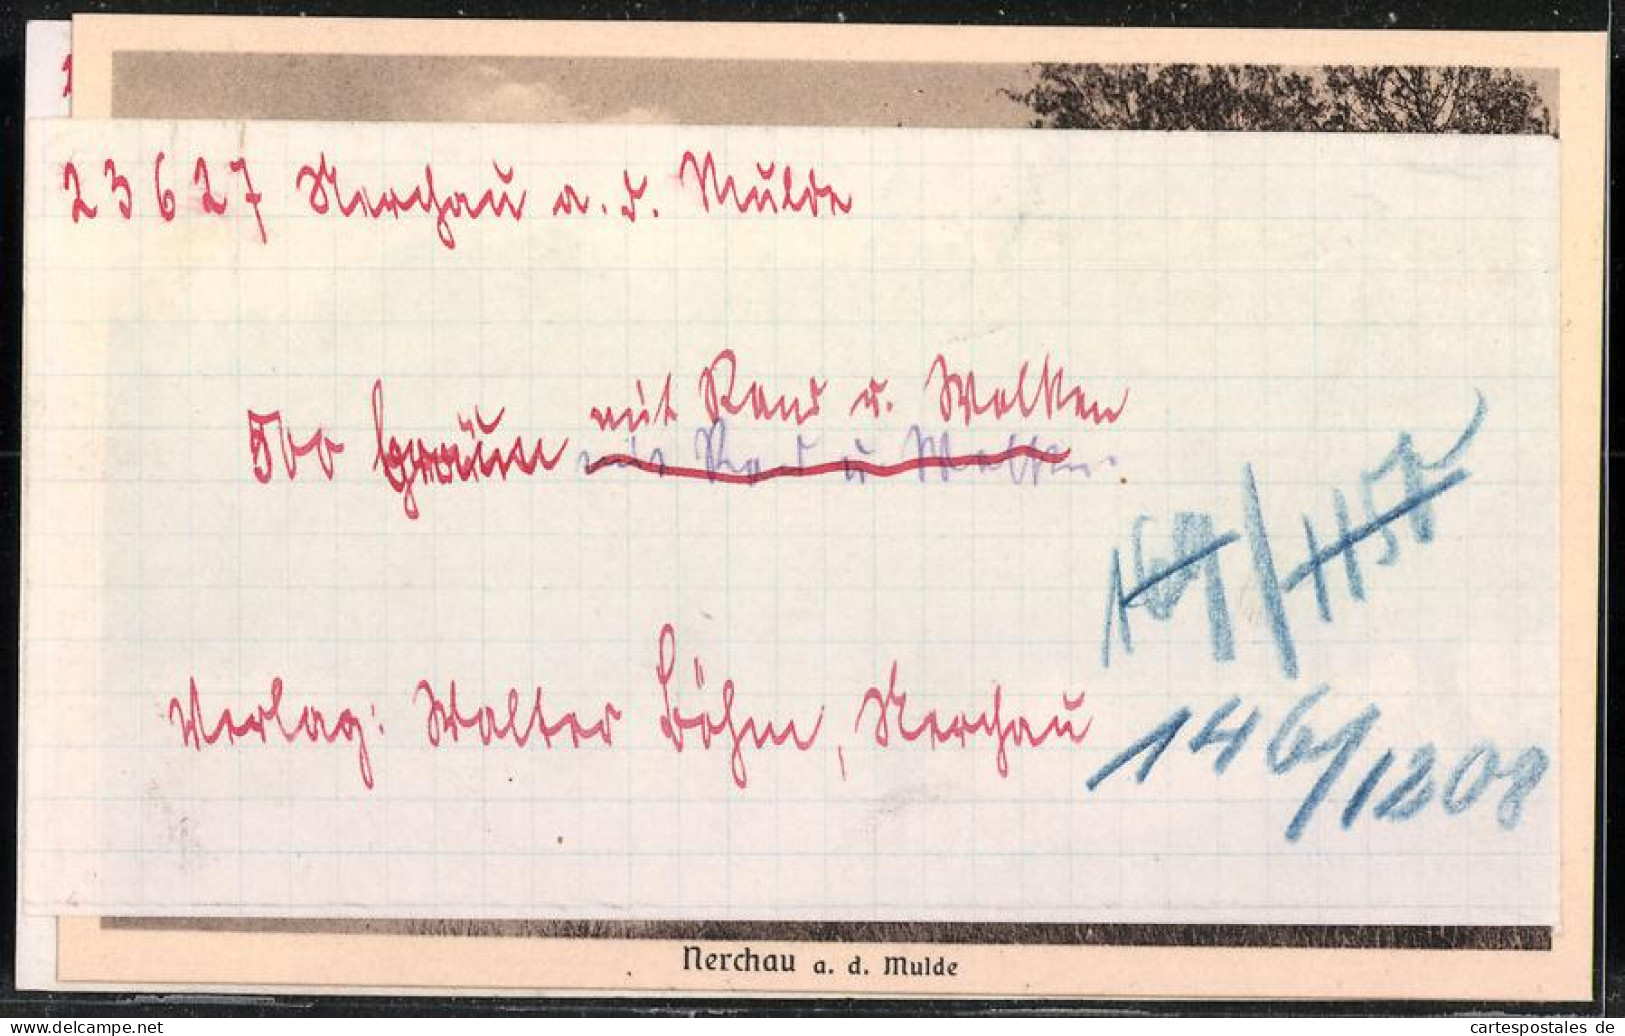 23627 Nerchau a. d. Mulde
500 braune mit Rand u. Wolken
mit Rand u Wolken.
169/1157
Verlag: Walter Böhm, Nerchau
146/1208
Nerchau a. d. Mulde
cartespostales de
www.cartespostales.eu